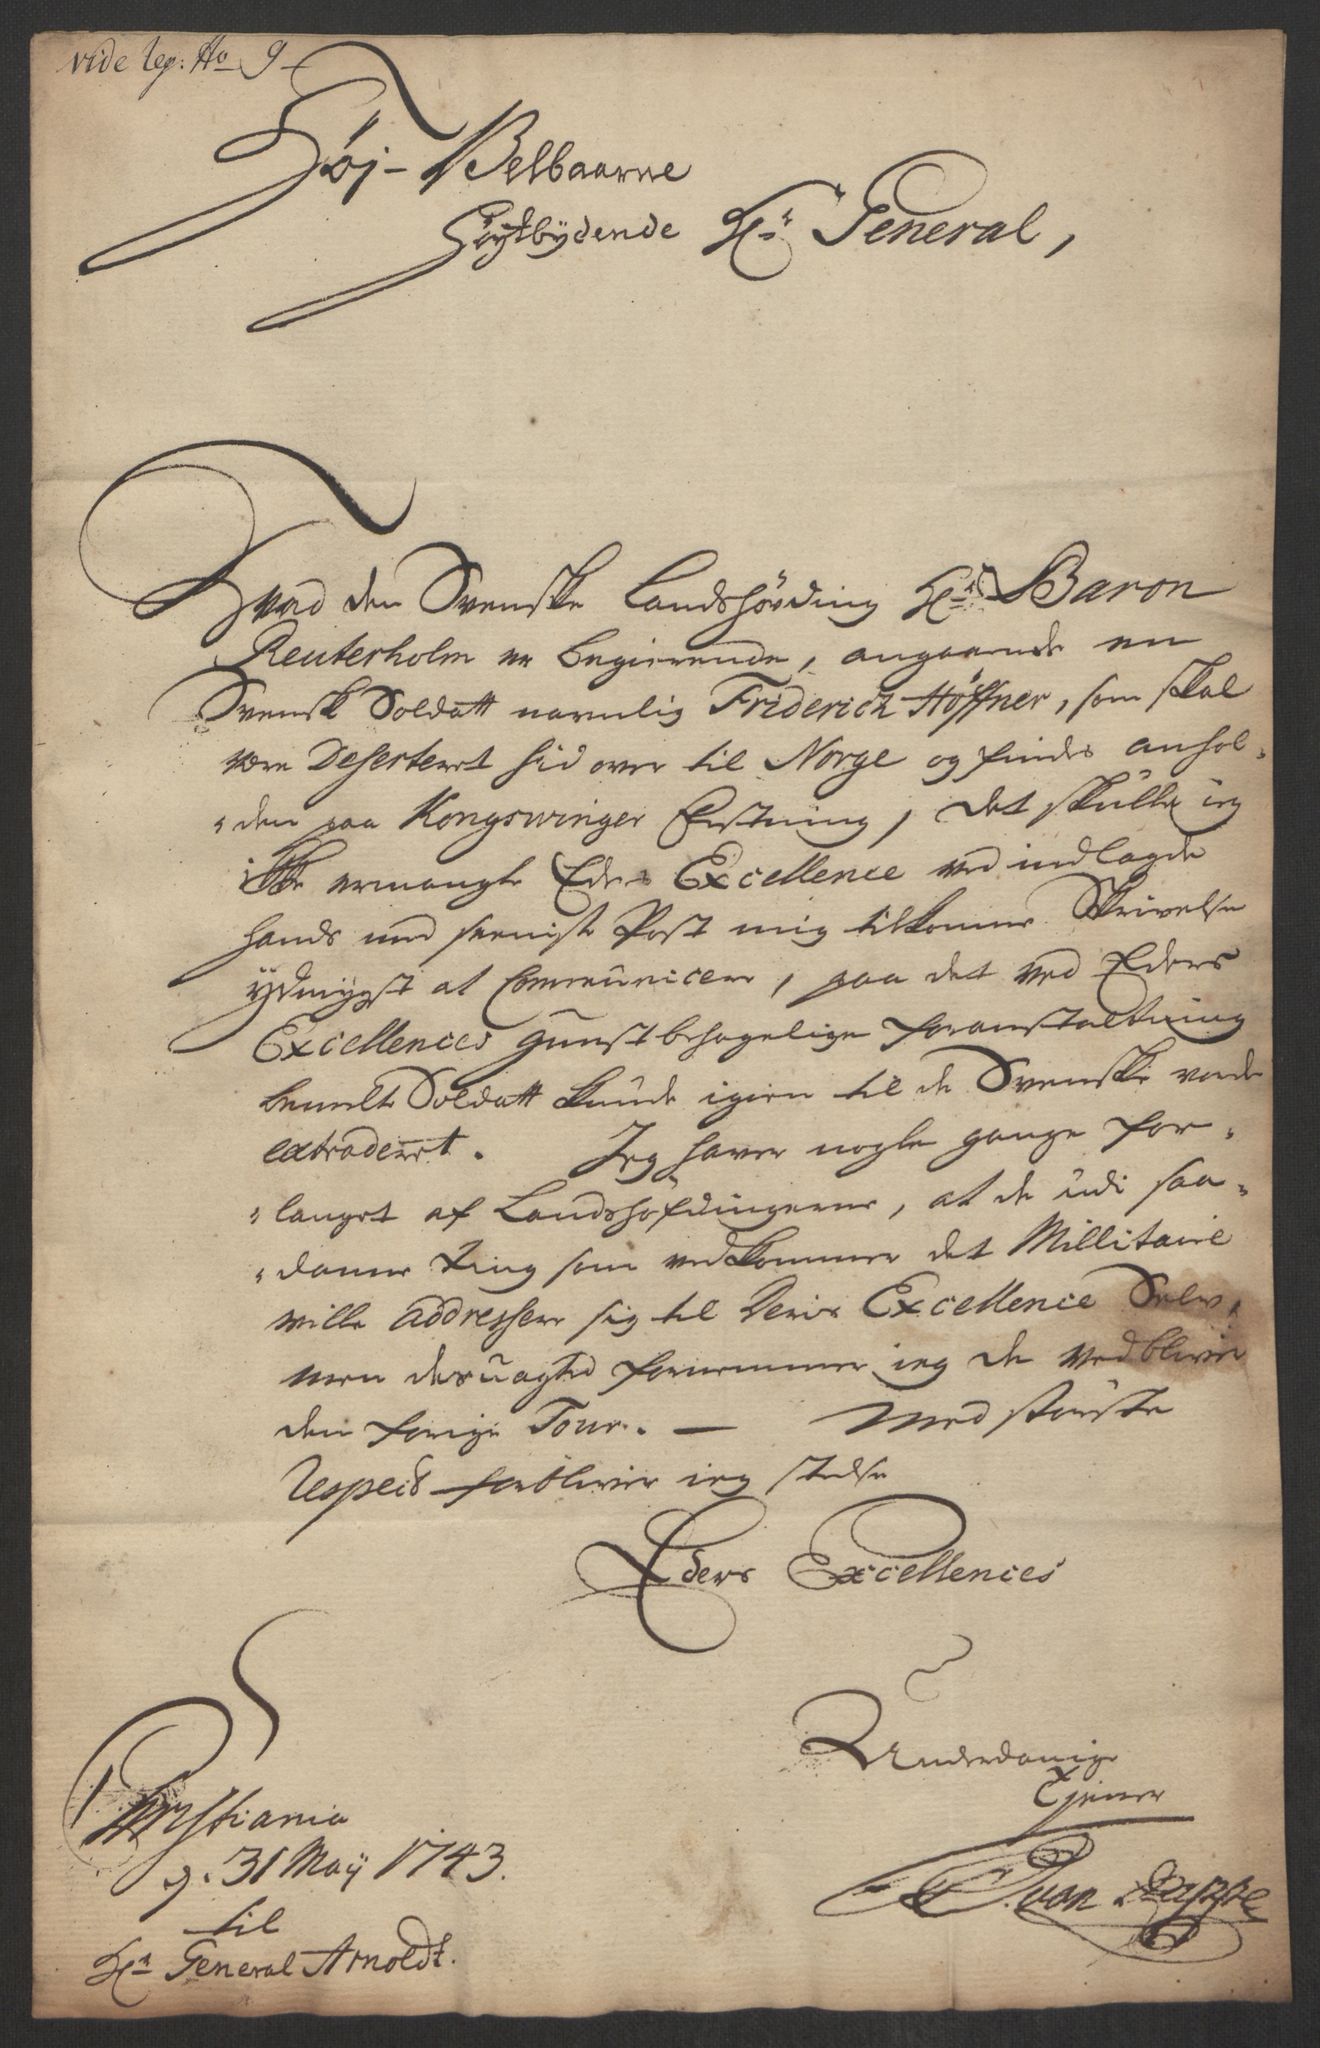 vide reg: No 9
Höj-Velbaarne
Höytbÿdende Hr. General,
Hvad den Svenske Landshövding Hr. Baron
Reuterholm er begierende, angaaende en
Svensk Soldatt navnlig Friderich Höffner, som skal
være Deserteret hid over til Norge og findes anhol-
-den paa Kongswinger Festning, det skulle ieg
icke ermangle Eders Excellence ved indlagde
hands med seeniste Post mig tilkomne Skrivelse
ÿdmygst at Communicere, paa det ved Eders
Excellences gunstbehagelige foranstaltning
bemelte Soldatt kunde igien til de Svenske vorde
extraderet. Jeg haver nogle gange for-
-langet af Landshöfdingerne, at de udi saa-
-danne ting som vedkommer det Millitaire
wille addressere sig til Deris Excellence Selv,
men desuagted fornemmer ieg de vedbliver
den forrige Tour. — Med störste
Respect forbliver ieg stedse
Eders Excellences
Underdanige
Tjener
Christiania
d. 31 Maÿ 1743.
til
Hr. General Arnoldt.